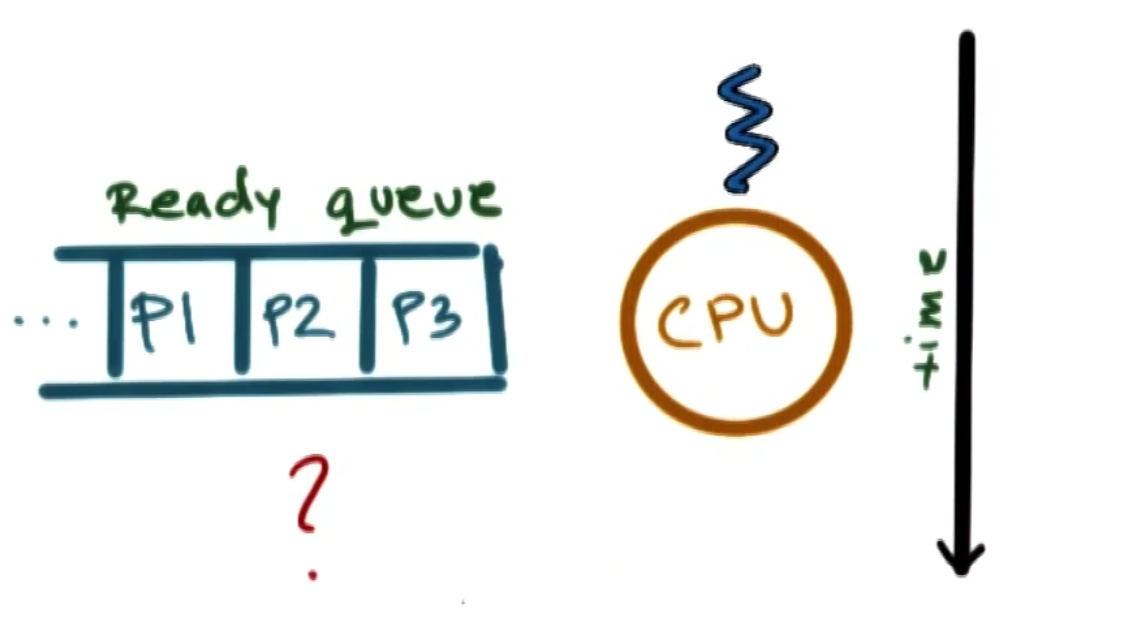 Ready queue
... P1 P2 P3
?
CPU
time